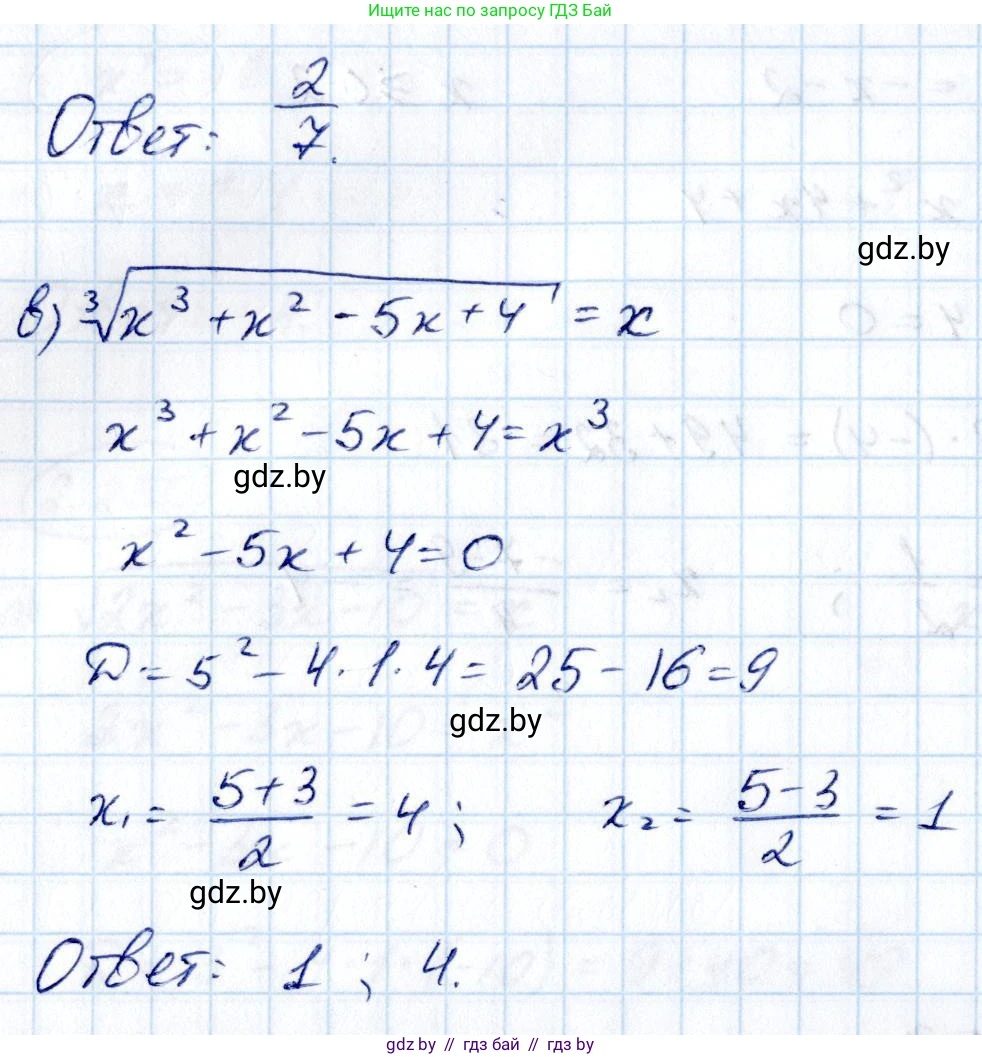 Ищите нас по запросу ГДЗ Бай
Ответ: 2/7.
gdz.by
в) ∛(x³ + x² - 5x + 4) = x
x³ + x² - 5x + 4 = x³
gdz.by
x² - 5x + 4 = 0
D = 5² - 4·1·4 = 25 - 16 = 9
gdz.by
x₁ = (5+3)/2 = 4; x₂ = (5-3)/2 = 1
gdz.by
Ответ: 1; 4.
gdz.by // гдз бай // гдз by